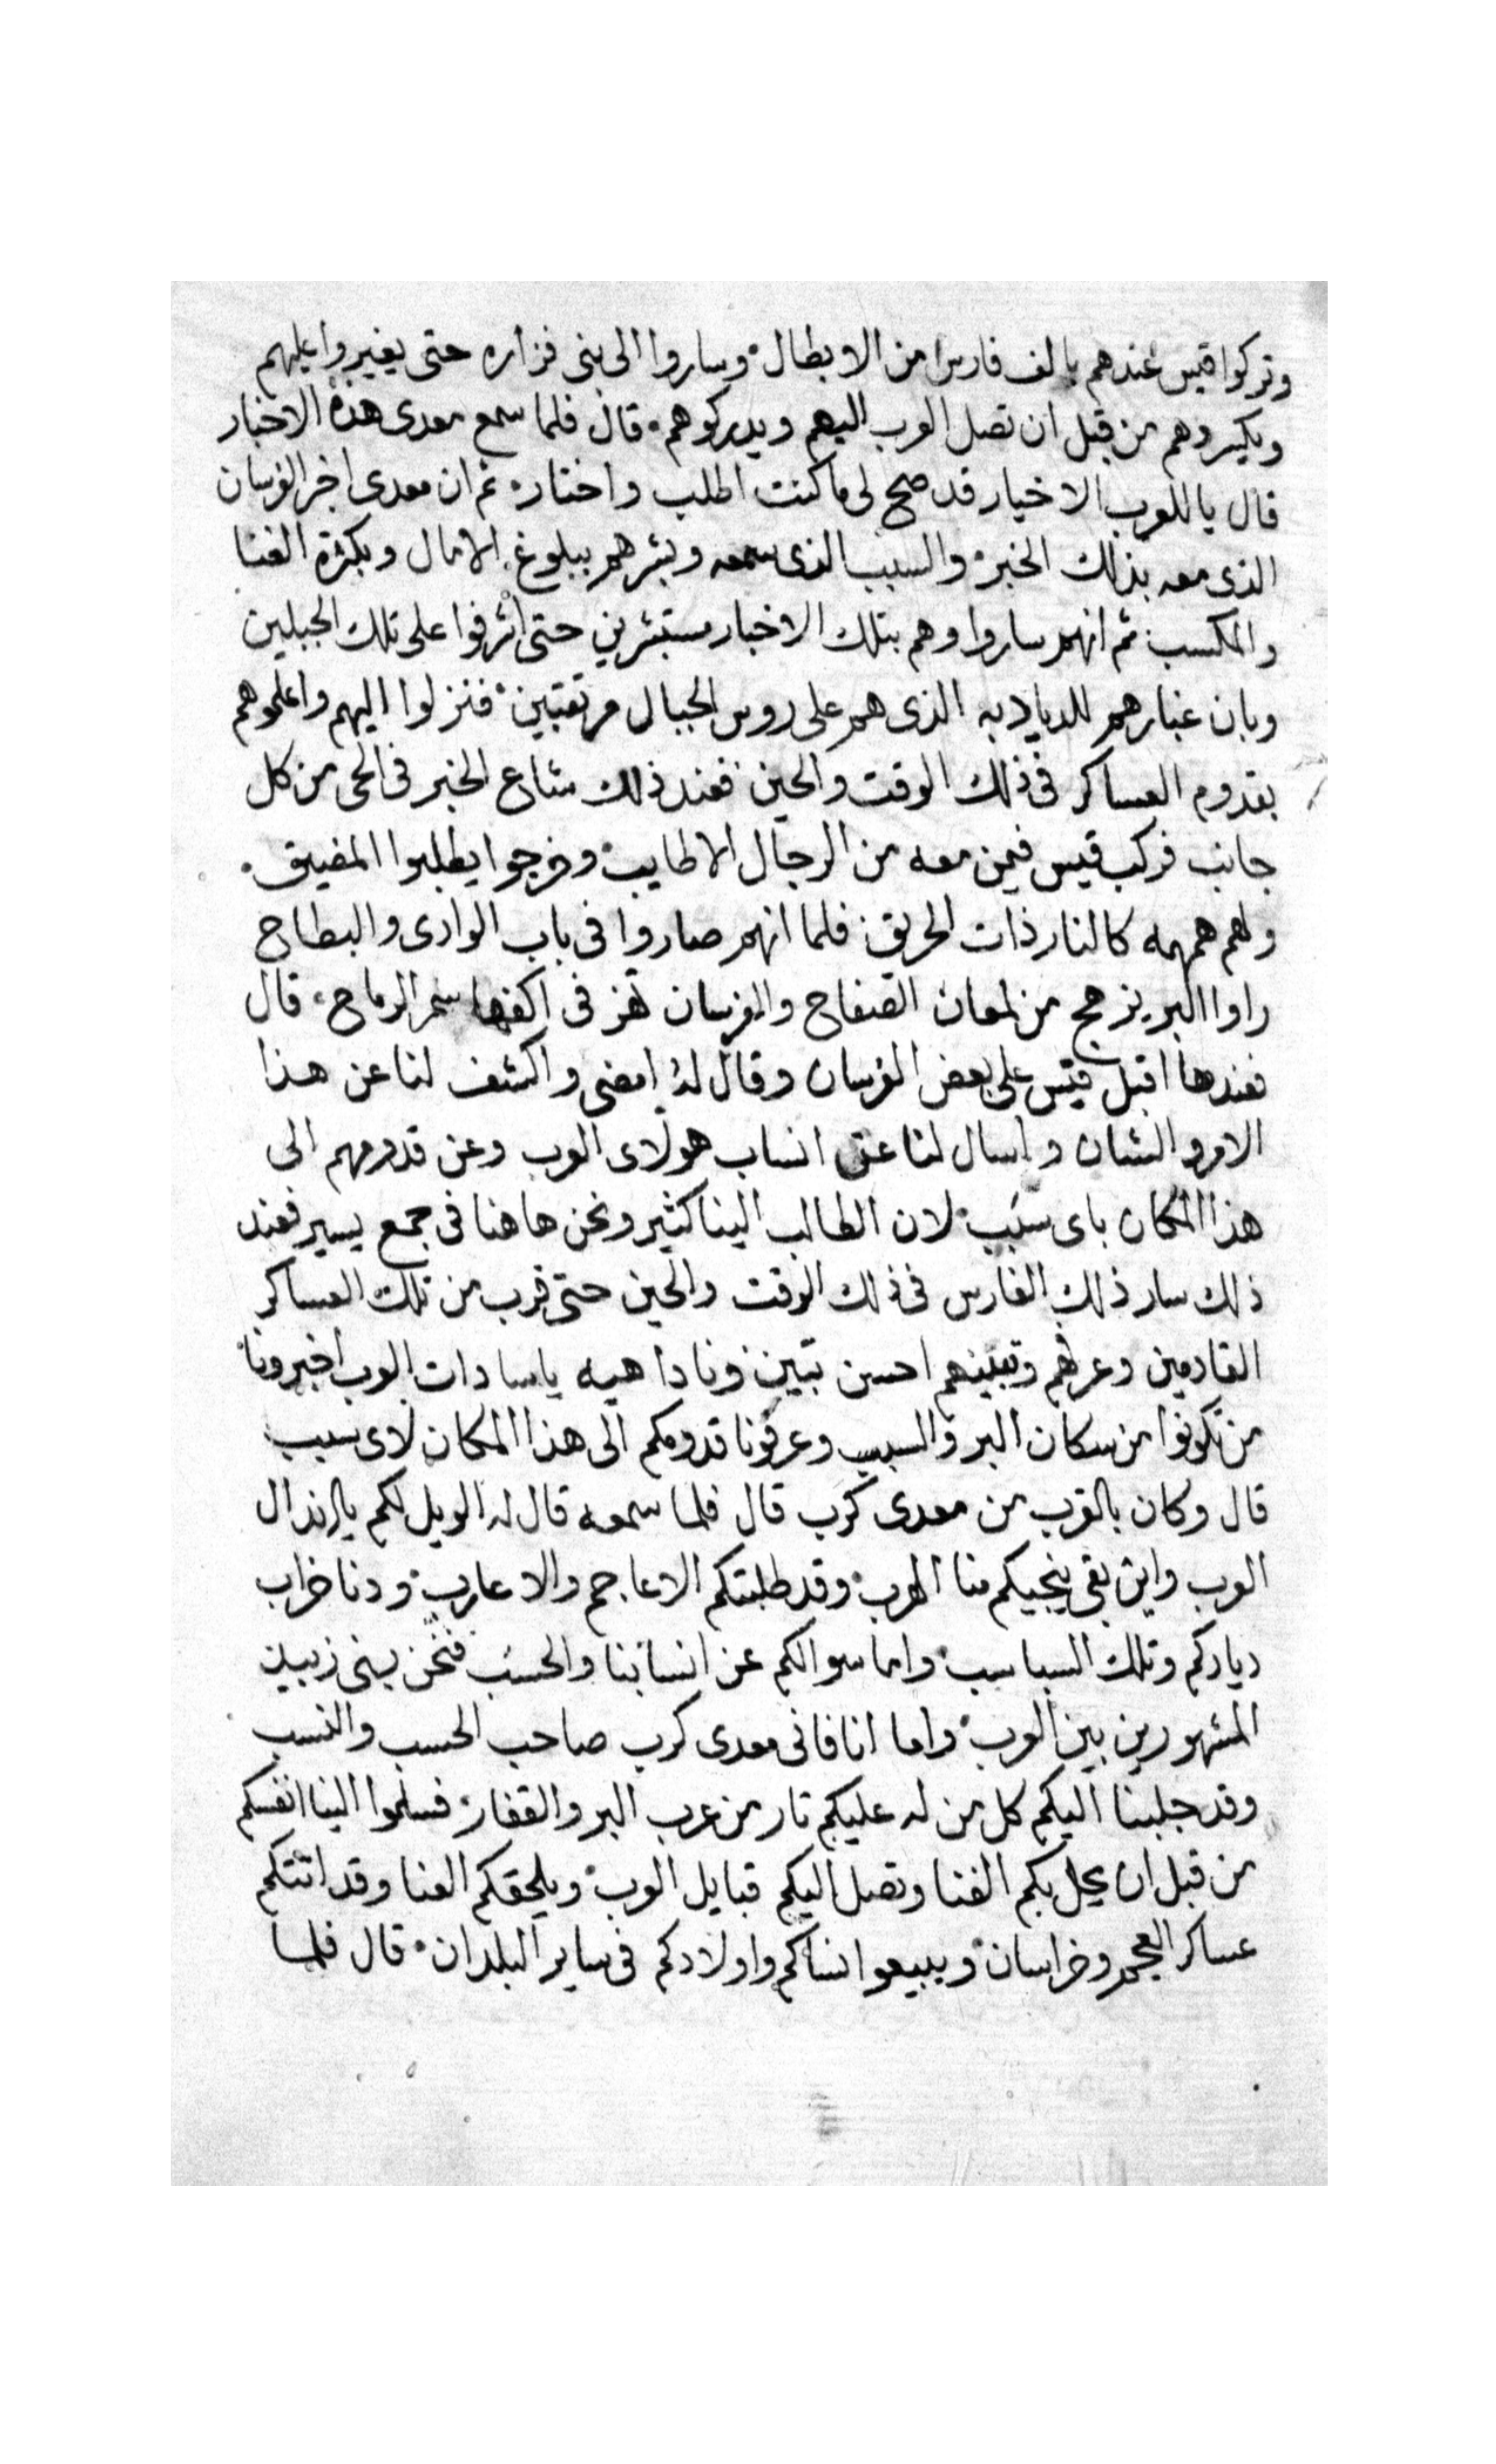 وتركوا قيس عندهم بالف فارس من الابطال وساروا الى بنى فزاره حتى يغيروا عليهم
ويكسروهم من قبل ان تصل العرب اليهم ويدركوهم قال فلما سمع معدى هذه الاخبار
قال يا للعرب الاخيار قد صح لى ما كنت اطلب واختار ثم ان معدى اخبر الفرسان
الذى معه بذلك الخبر والسبب الذى سمعه وبشرهم ببلوغ الامال وبكثرة الغنا
والمكسب ثم انهم ساروا وهم بتلك الاخبار مستبشرين حتى اشرفوا على تلك الجبلين
وبان غبارهم للديادبه الذى هم على روس الجبال مرتقبين فنزلوا اليهم واعلموهم
بقدوم العساكر فى ذلك الوقت والحين فعند ذلك شاع الخبر فى الحى من كل
جانب فركب قيس فيمن معه من الرجال الاطايب وخرجوا يطلبوا المضيق
ولهم همهمه كالنار ذات الحريق فلما انهم صاروا فى باب الوادى والبطاح
راوا البر يزهج من لمعان الصفاح والفرسان تهز فى اكفها سمر الرماح قال
فعندها اقبل قيس على بعض الفرسان وقال له امضى واكشف لنا عن هذا
الامر والشان واسال لنا عن انساب هولاى العرب وعن قدومهم الى
هذا المكان باى سبب لان الطالب الينا كثير ونحن هاهنا فى جمع يسير فعند
ذلك سار ذلك الفارس فى ذلك الوقت والحين حتى قرب من تلك العساكر
القادمين وعرفهم وتبينهم احسن تبين ونادا هيه يا سادات العرب اخبرونا
من تكونوا من سكان البر والسبب وعرفونا قدومكم الى هذا المكان لاى سبب
قال وكان بالقرب من معدى كرب قال فلما سمعه قال له الويل لكم يا اندال
العرب واين بقى ينجيكم منا الهرب وقد طلبتكم الاعاجم والاعارب ودنا خراب
دياركم وتلك السباسب واما سوالكم عن انسابنا والحسب فنحن بنى زبيد
المشهورين بين العرب واما انا فانى معدى كرب صاحب الحسب والنسب
وقد جلبنا اليكم كل من له عليكم تار من عرب البر والقفار فسلموا الينا انفسكم
من قبل ان يحل بكم الفنا وتصل اليكم قبايل العرب ويلحقكم العنا وقد اتتكم
عساكر العجم وخراسان ويبيعوا نساكم واولادكم فى ساير البلدان قال فلما